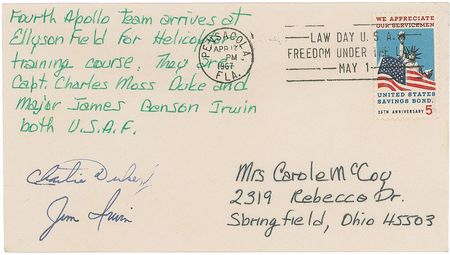 Fourth Apollo Team arrives at
Ellyson Field for Helicopter
training course. They are
Capt. Charles Moss Duke and
Major James Benson Irwin
both U.S.A.F.
PENSACOLA,
APR 12
PM
1967
FLA.
LAW DAY U.S.A.
FREEDOM UNDER
MAY 1
WE APPRECIATE
OUR SERVICEMEN
UNITED STATES
SAVINGS BOND
25TH ANNIVERSARY 5
Charlie Duke
Jim Irwin
Mrs Carole McCoy
2319 Rebecca Dr.
Springfield, Ohio 45503